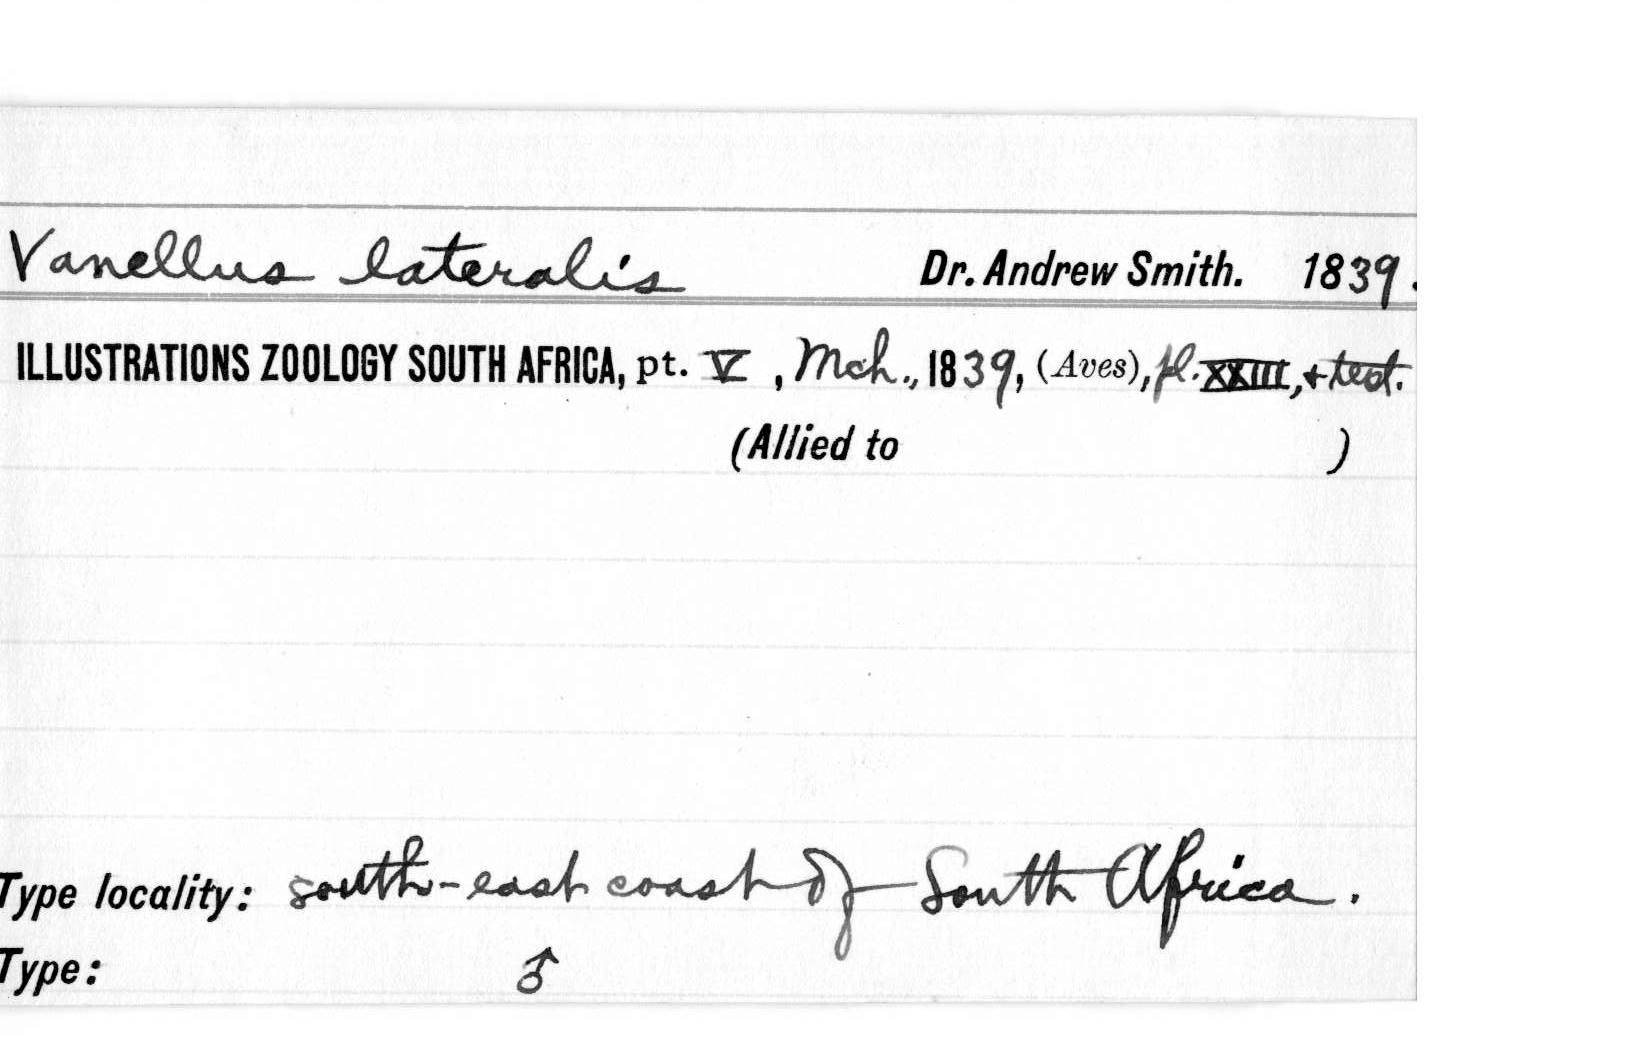 Vanellus lateralis Dr. Andrew Smith. 1839.
ILLUSTRATIONS ZOOLOGY SOUTH AFRICA, pt. V , Mch., 1839, (Aves), pl. XXIII, + text.
(Allied to )
Type locality: south-east coast of South Africa.
Type: ♂